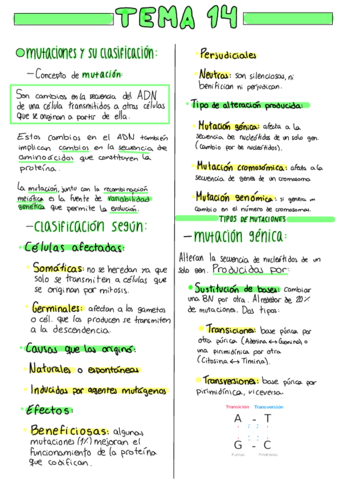 TEMA 14
mutaciones y su clasificación:
- Concepto de mutación
Son cambios en la secuencia del ADN
de una célula transmitidos a otras células
que se originan a partir de ella.
Estos cambios en el ADN también
implican cambios en la secuencia de
aminoácidos que constituyen la
proteína.
La mutación, junto con la recombinación
meiótica es la fuente de variabilidad
genética que permite la evolución.
- clasificación según:
· Células afectadas:
· Somáticas: no se heredan ya que
solo se transmiten a células que
se originan por mitosis.
· Germinales: afectan a los gametos
o cél. que los producen se transmiten
a la descendencia.
· Causas que las origina:
· Naturales o espontáneas
· Inducidas por agentes mutágenos
· Efectos:
· Beneficiosas: algunas
mutaciones (1%) mejoran el
funcionamiento de la proteína
que codifican.
· Persudiciales
· Neutras: son silenciosas, ni
benefician ni perjudican.
· Tipo de alteración producida:
· Mutación génica: afecta a la
secuencia de nucleótidos de un solo gen.
(cambio por be nucleótidos).
· Mutación cromosómica: afecta a la
secuencia de genes de un cromosoma
· Mutación genómica: si genera
cambio en el número de cromosomas.
TIPOS DE MUTACIONES
- mutación génica:
Alteran la secuencia de nucleótidos de un
solo gen. Producidas por:
· Sustitución de bases: cambiar
una BN por otra. Alrededor de 20%
de mutaciones. Dos tipos:
· Transiciones: base púrica por
otra púrica (Adenina ↔ Guanina) o
una pirimidínica por otra
(Citosina ↔ Timina).
· Transversiones: base púrica por
pirimidínica, viceversa.
Transición Transversión
A - T
G - C